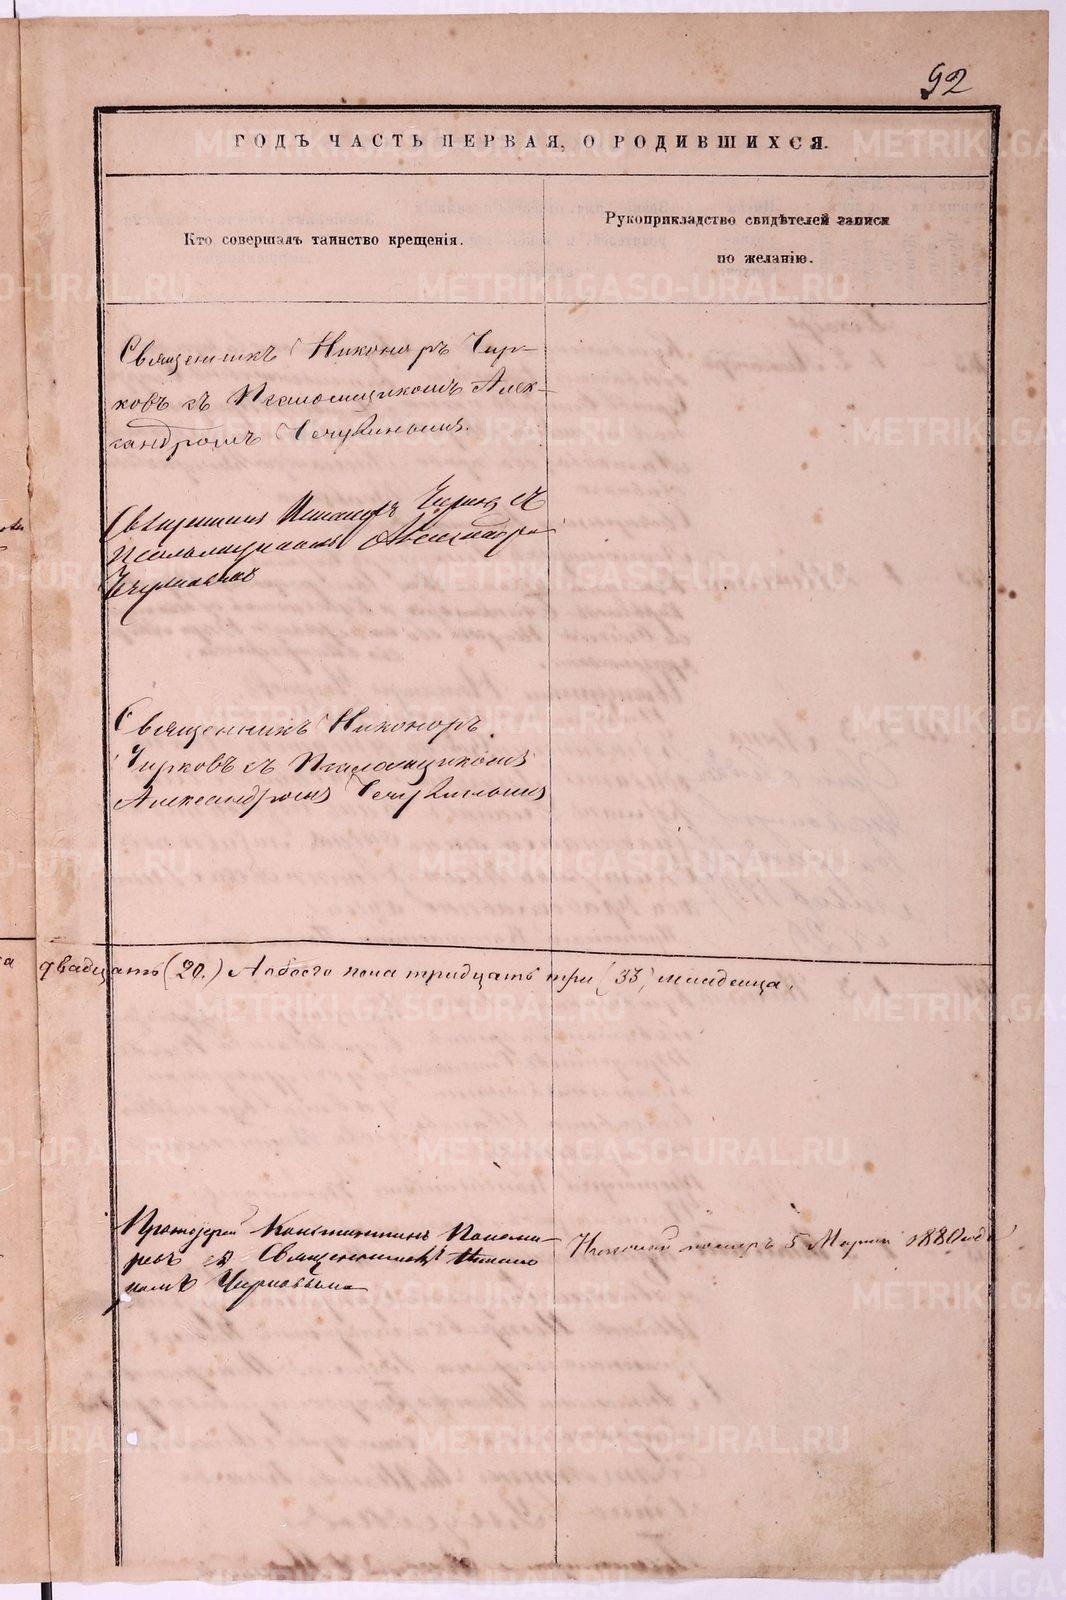 92
ГОДЪ ЧАСТЬ ПЕРВАЯ, О РОДИВШИХСЯ.
Кто совершалъ таинство крещенія.
Рукоприкладство свидѣтелей записи
по желанію.
Священникъ Никоноръ Чир-
ковъ съ Псаломщикомъ Алек-
сандромъ
Священникъ Никоноръ Чирковъ съ
Псаломщикомъ Александро
Священникъ Никоноръ
Чирковъ съ Псаломщикомъ
Александромъ
двадцать (20.) А обоего пола тридцать три (33) младенца.
Протоіерей Константинъ Понома-
ревъ съ Священникомъ Никоно
ромъ Чирковымъ
5 Марта 1880 года
METRIKI.GASO-URAL.RU